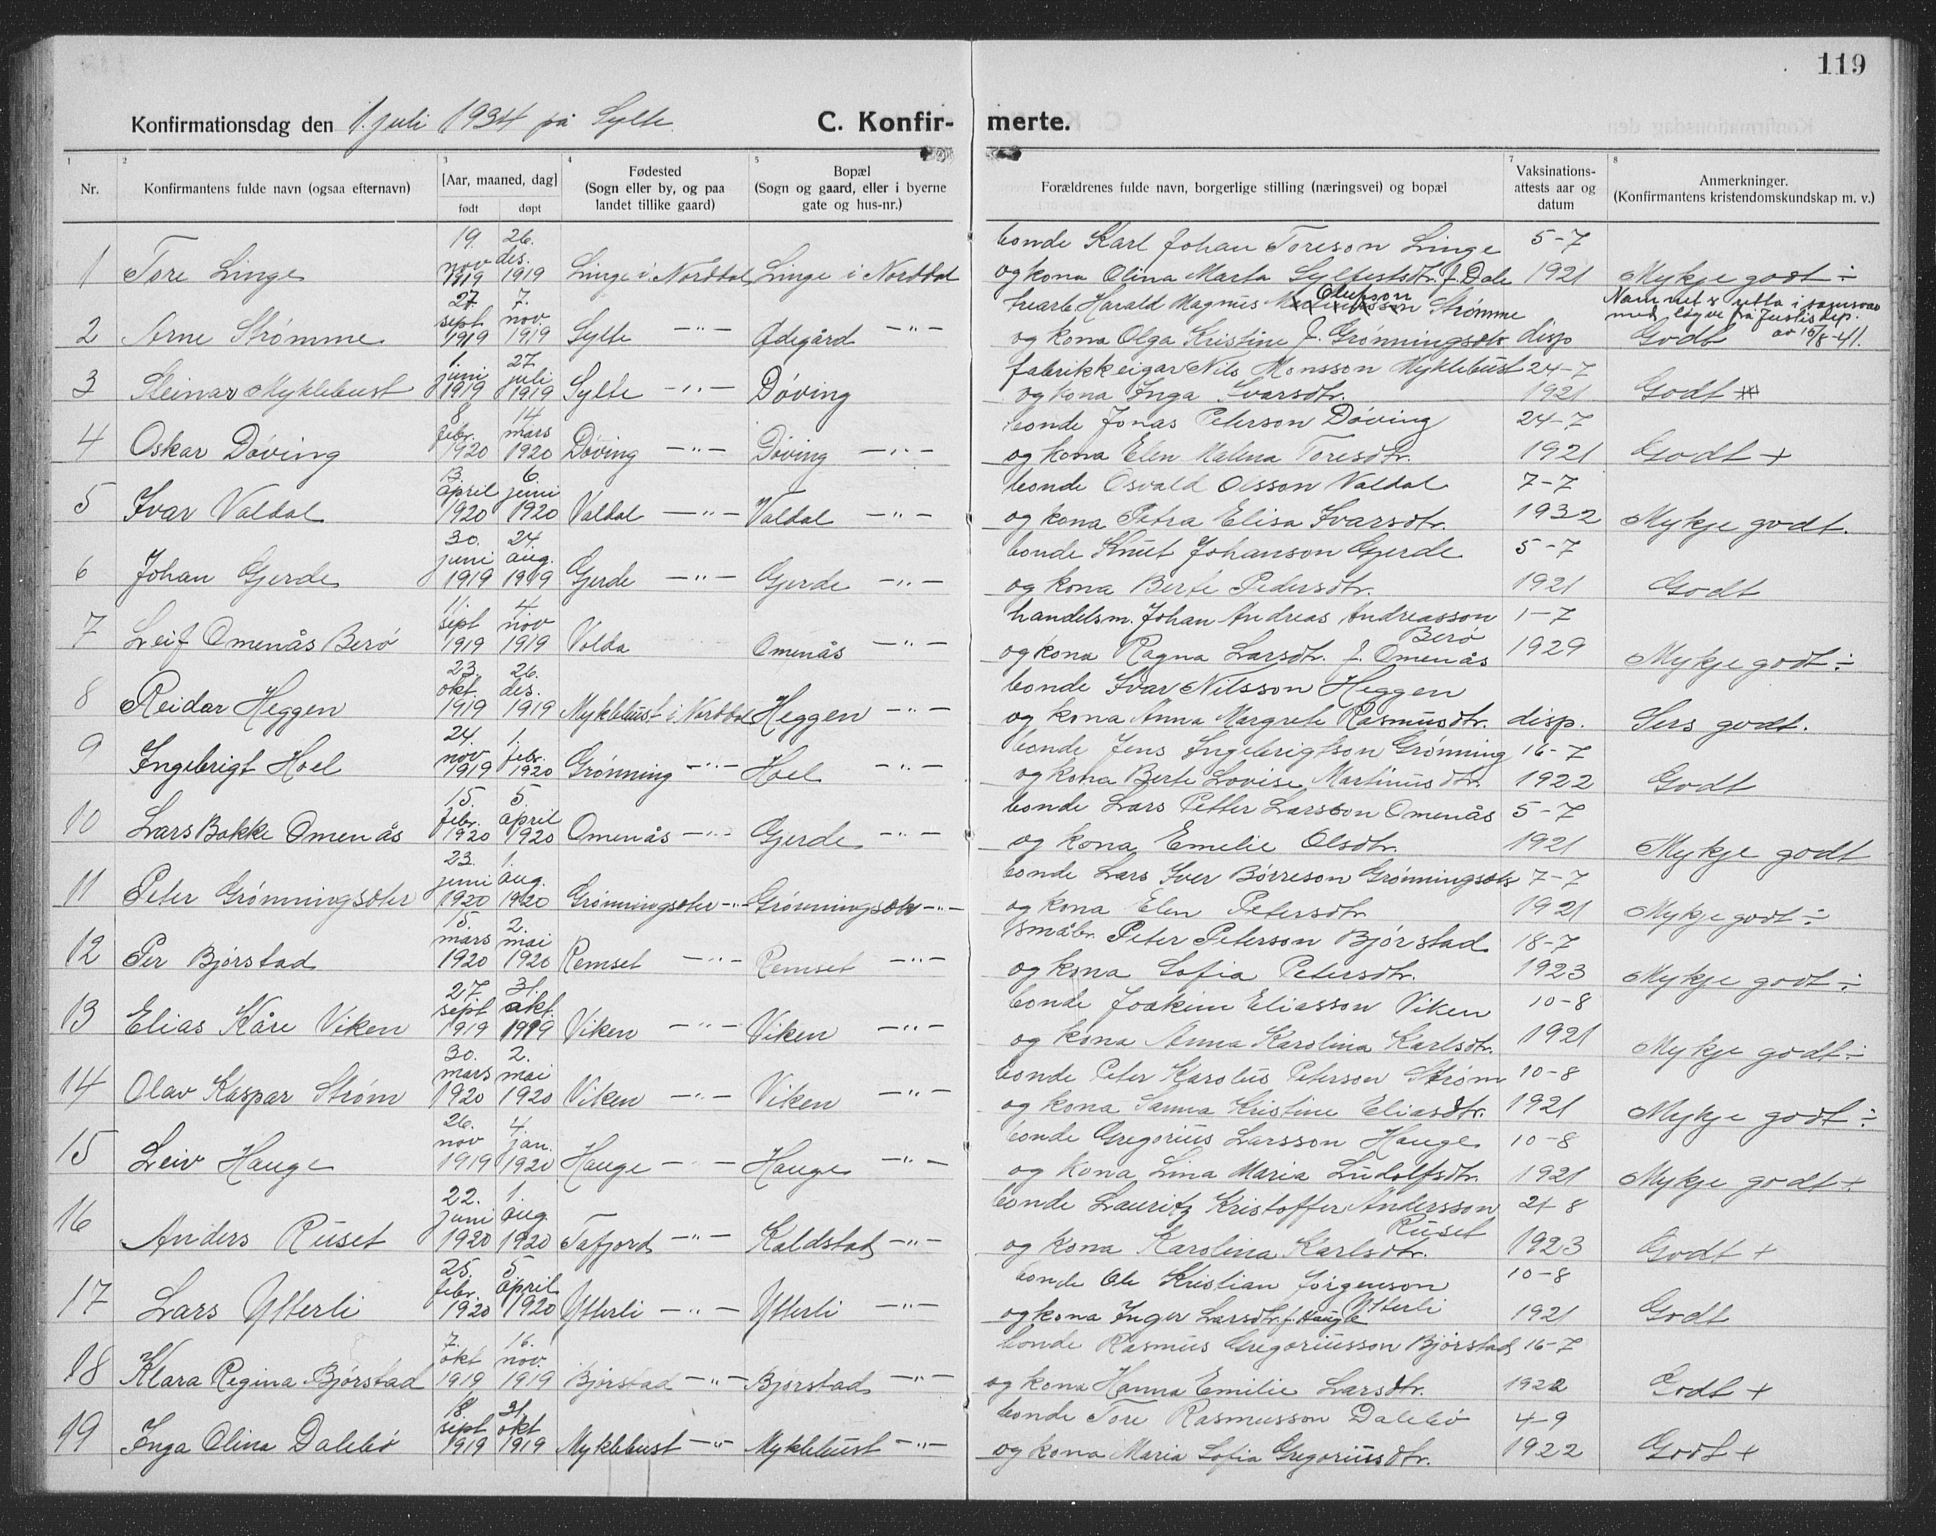 119
Konfirmationsdag den 1. juli 1934 på Sylte.
C. Konfirmerte.
1 2 3 4 5 7 8
Nr.
Konfirmantens fulde navn (ogsaa efternavn)
[Aar, maaned, dag]
født døpt
Fødested
(Sogn eller by, og paa
landet tillike gaard)
Bopæl
(Sogn og gaard, eller i byerne
gate og hus-nr.)
Forældrenes fulde navn, borgerlige stilling (næringsvei) og bopæl
Vaksinations-
attests aar og
datum
Anmerkninger.
(Konfirmantens kristendomskundskap m. v.)
19. 26. bonde Karl Johan Toreson Linge 5-7
nov des.
1 Tore Linge 1919 1919 Linge i Norddal Linge i Norddal og kona Olina Marta Sylfestsdtr. f. Dale 1921 Mykje godt ÷
27 7. trearb. Harald Magnus Olufson Strømme Namnet er retta i samsvar
sept nov. med løyve frå Justisdep.
2 Arne Strømme 1919 1919 Sylte —„— Ødegård —„— og kona Olga Kristine f. Grønningsetr. disp Godt av 15/8-41.
1. 27. fabrikkeigar Nils Monsson Myklebust 24-7
juni juli
3 Steinar Myklebust 1919 1919 Sylte —„— Døving og kona Inga Ivarsdtr. 1921 Godt
8 14 bonde Jonas Peterson Døving 24-7
febr. mars
4 Oskar Døving 1920 1920 Døving —„— Døving —„— og kona Elen Malena Toresdtr. 1921 Godt +
13. 6. bonde Osvald Olsson Valdal 7-7
april juni
5 Ivar Valdal 1920 1920 Valdal —„— Valdal —„— og kona Petra Elisa Ivarsdtr. 1932 Mykje godt.
30. 24 bonde Knut Johanson Gjerde 5-7
juni aug.
6 Johan Gjerde 1919 1919 Gjerde —„— Gjerde —„— og kona Berte Pedersdtr. 1921 Godt
11. 4. handelsm. Johan Andreas Andreasson 1-7
sept nov Berø
7 Leif Omenås Berø 1919 1919 Volda Omenås —„— og kona Ragna Larsdtr. f. Omenås 1929 Mykje godt ÷
23. 26. bonde Ivar Nilsson Heggen
okt. des.
8 Reidar Heggen 1919 1919 Myklebust i Norddal Heggen —„— og kona Anna Margrete Rasmusdtr. disp. Sers godt.
24. 1. bonde Jens Ingebrigtson Grønning 16-7
nov febr.
9 Ingebrigt Hoel 1919 1920 Grønning —„— Hoel —„— og kona Berte Lovise Martinusdtr. 1922 Godt
15. 5. bonde Lars Petter Larsson Omenås 5-7
febr. april
10 Lars Bakke Omenås 1920 1920 Omenås —„— Gjerde —„— og kona Emelie Olsdtr. 1921 Mykje godt
23. 1. bonde Lars Iver Børreson Grønningsetr 7-7
juni aug.
11 Peter Grønningsæter 1920 1920 Grønningsæter —„— Grønningsætr —„— og kona Elen Petersdtr 1921 Mykje godt ÷
15. 2. småbr. Peter Peterson Bjørstad 18-7
mars mai
12 Per Bjørstad 1920 1920 Remset —„— Remset —„— og kona Sofia Petersdtr. 1923 Mykje godt ÷
27 31. bonde Joakim Eliasson Viken 10-8
sept okt.
13 Elias Kåre Viken 1919 1919 Viken —„— Viken —„— og kona Anna Karolina Karlsdtr. 1921 Mykje godt ÷
30. 2. bonde Peter Karolus Peterson Strøm 10-8
mars mai
14 Olav Kaspar Strøm 1920 1920 Viken —„— Viken —„— og kona Sanna Kristine Eliasdtr. 1921 Mykje godt ÷
26. 4. bonde Gregorius Larsson Hauge 10-8
nov jan.
15 Leiv Hauge 1919 1920 Hauge —„— Hauge —„— og kona Lina Maria Ludolfsdtr. 1921 Mykje godt +
22. 1. bonde Lauritz Kristoffer Andersson 21-8
juni aug. Ruset
16 Anders Ruset 1920 1920 Tafjord —„— Kaldstad —„— og kona Karolina Karlsdtr. 1923 Godt +
25 5 bonde Ole Kristian Jørgenson 10-8
febr. april Ytterli
17 Lars Ytterli 1920 1920 Ytterli —„— Ytterli —„— og kona Inger Larsdtr. f. Hauge 1921 Godt
7. 16. bonde Rasmus Gregoriusson Bjørstad 16-7
okt nov.
18 Klara Regina Bjørstad 1919 1919 Bjørstad —„— Bjørstad —„— og kona Hanna Emilie Larsdtr. 1922 Godt +
18 21. bonde Tore Rasmusson Dalebø 4-9
sept okt
19 Inga Olina Dalebø 1919 1919 Myklebust —„— Myklebust —„— og kona Maria Sofia Gregoriusdtr. 1922 Godt +